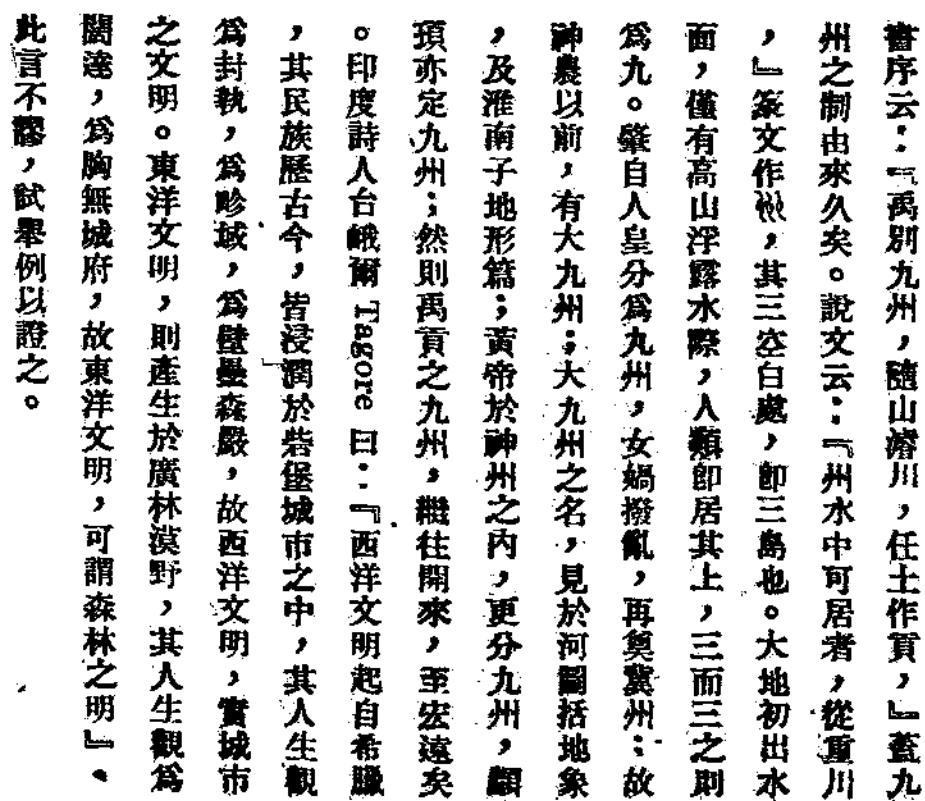 書序云：『禹別九州，隨山濬川，任土作貢，』蓋九
州之制由來久矣。說文云：『州水中可居者，從重川
，』篆文作，其三空白處，卽三島也。大地初出水
面，僅有高山浮露水際，人類卽居其上，三而三之則
爲九。肇自人皇分爲九州，女媧撥亂，再奠冀州：故
神農以前，有大九州；大九州之名，見於河圖括地象
，及淮南子地形篇；黃帝於神州之內，更分九州，顓
頊亦定九州；然則禹貢之九州，繼往開來，至宏遠矣
。印度詩人台峨爾 Tagore 曰：『西洋文明起自希臘
，其民族歷古今，皆浸潤於砦堡城市之中，其人生觀
爲封執，爲畛域，爲壁壘森嚴，故西洋文明，實城市
之文明。東洋文明，則產生於廣林漠野，其人生觀爲
闊達，爲胸無城府，故東洋文明，可謂森林之明』。
此言不謬，試舉例以證之。